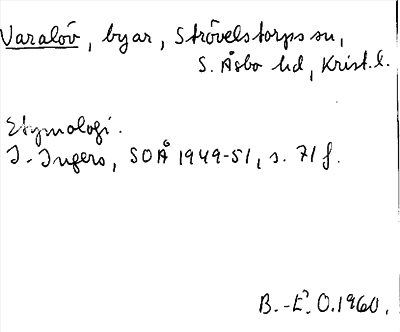 Varalöv, byar, Strövelstorps sn,
S. Åsbo hd, Krist. l.
Etymologi.
I. Ingers, SOÅ 1949-51, s. 71 f.
B.-E. O. 1960.